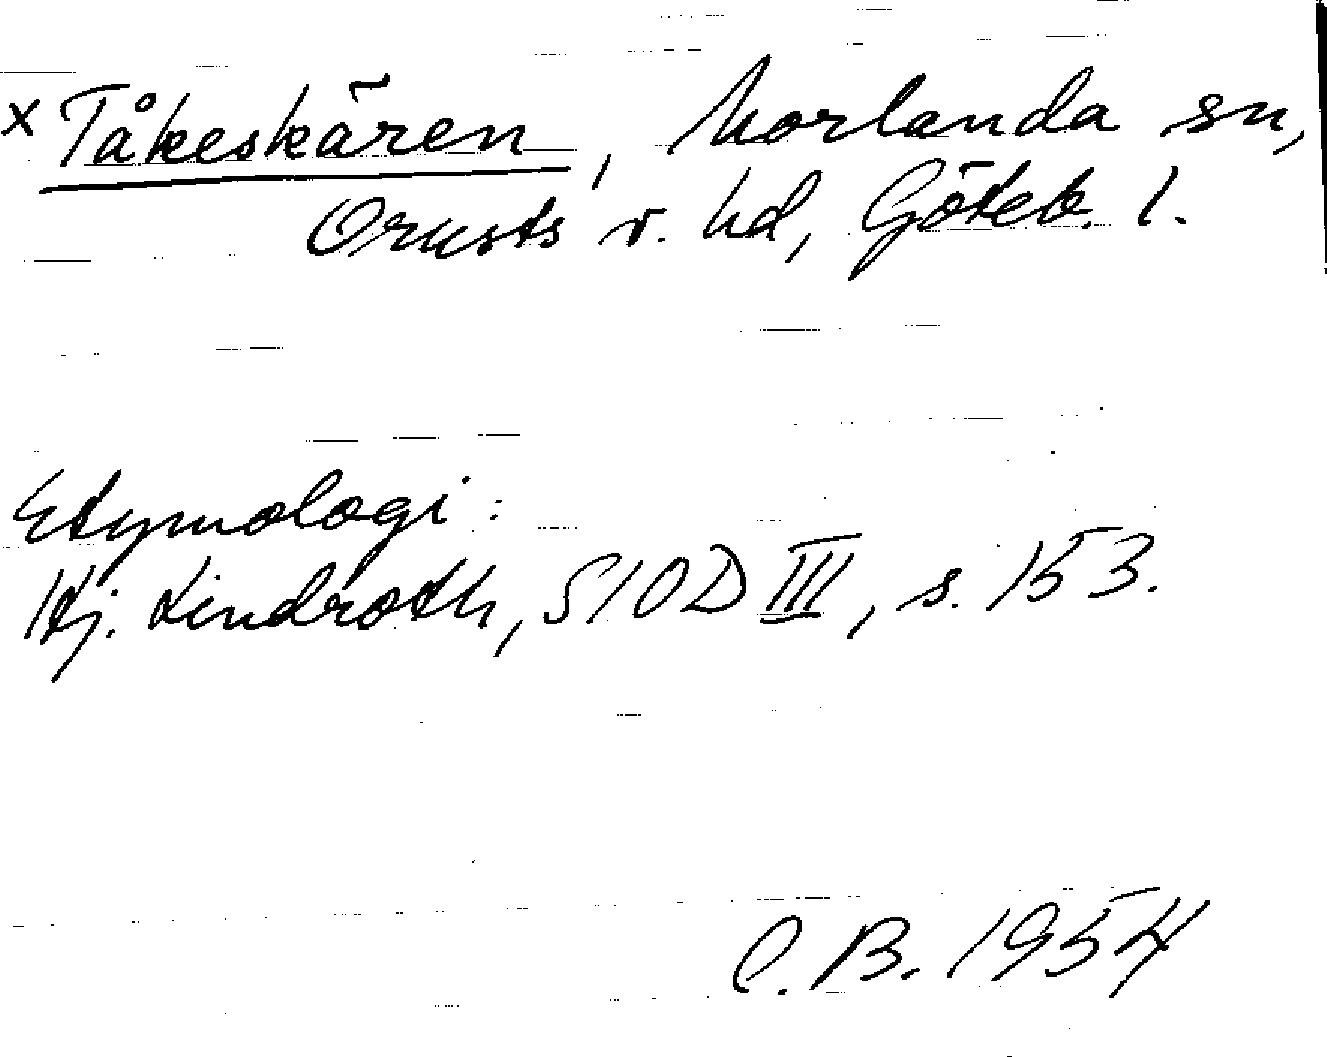 x Tåkeskären, Morlanda sn,
Orusts v. hd, Göteb. l.
Etymologi:
Hj. Lindroth, SIOD III, s. 153.
C. B. 1954